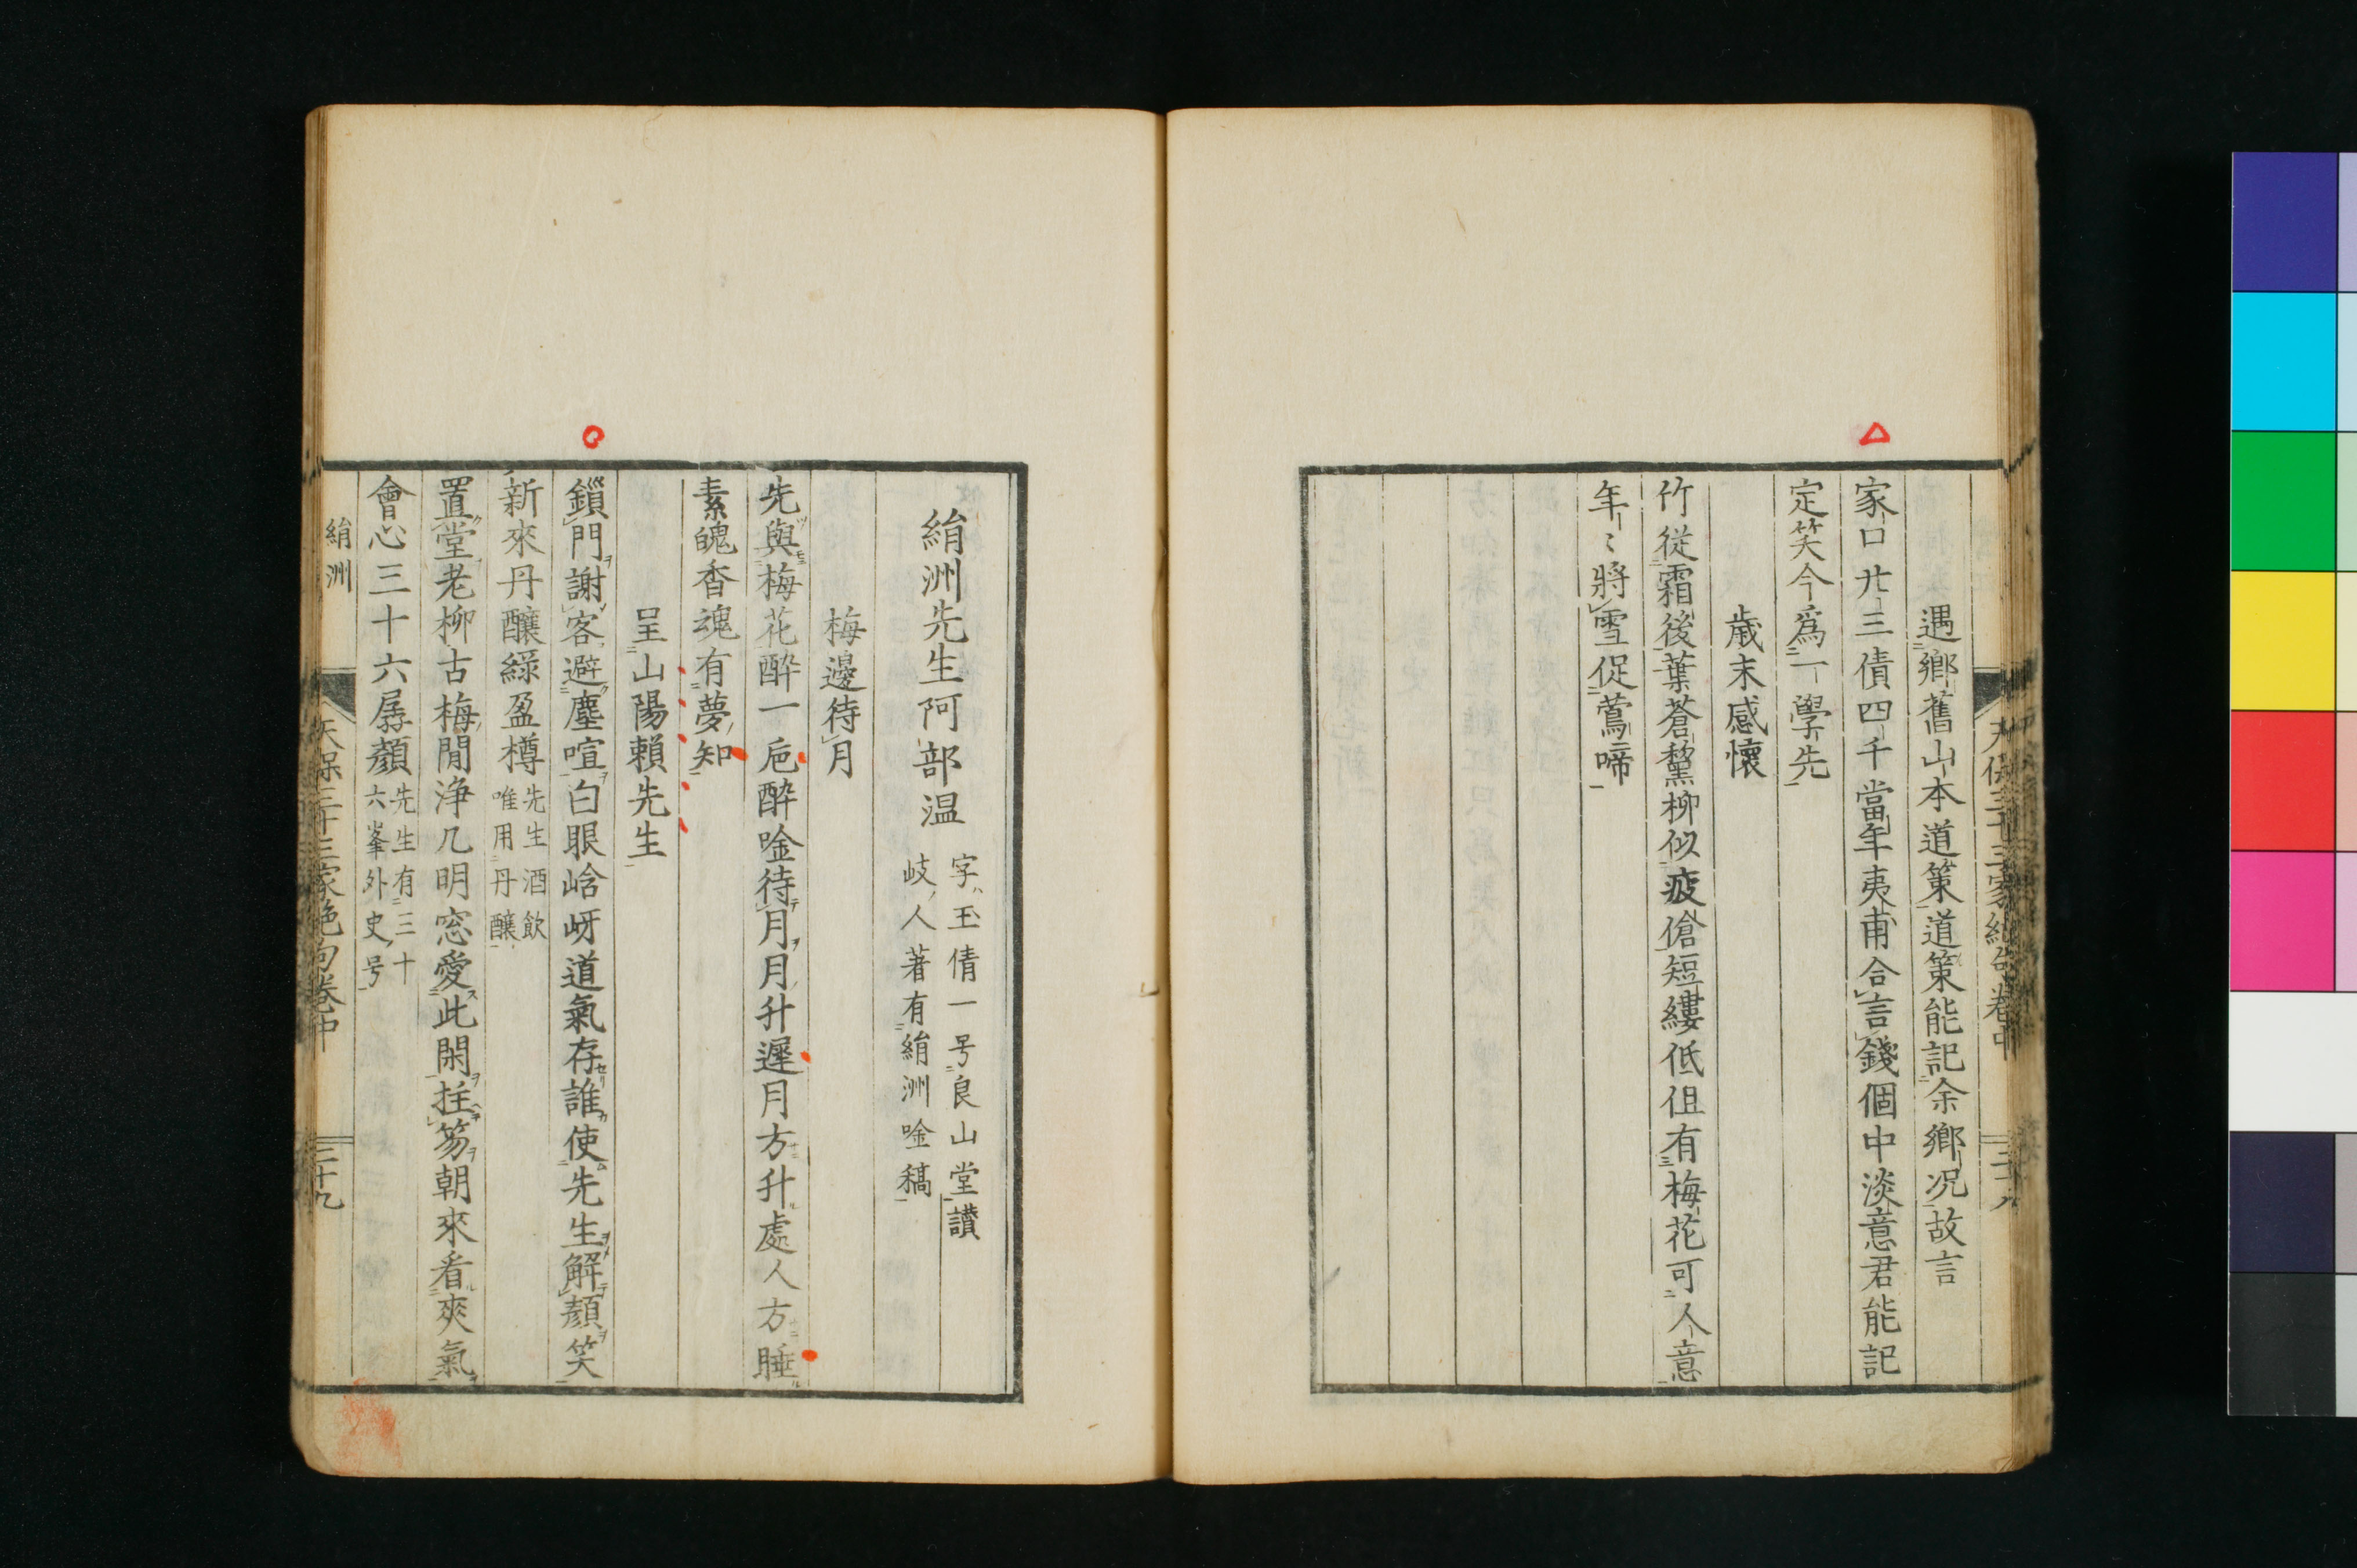 遇鄉舊山本道策道策能記余鄉况故言
家口廾三債四千當年夷甫合言錢個中淡意君能記
定笑今爲一學先
歳末感懷
竹從霜後葉蒼黧柳似疲傖短縷低伹有梅花可人意
年〻將雪促鶯啼
天保三十三家絶句卷中
三十八
絹洲先生阿部温
字玉倩一号良山堂讃
岐人著有絹洲唫稿
梅邊待月
先與梅花醉一巵醉唫待月月升遲月方升處人方睡
素魄香魂有夢知
呈山陽賴先生
鎻門謝客避塵喧白眼峆岈道氣存誰使先生解顏笑
新來丹釀綠盈樽
先生酒飲
唯用丹釀
置堂老柳古梅閒浄几明窓愛此閑拄笏朝來看爽氣
會心三十六孱顏
先生有三十
六峯外史号
絹洲
天保三十三家絶句卷中
三十九